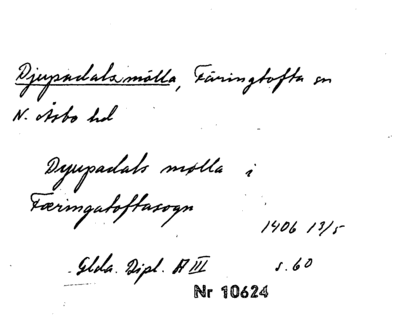 Djupadals mölla, Färingtofta sn
N. Åsbo hd
Dyupadals mølla i
Færingatoftasogn
1406 13/5
Glda. Dipl. A III s. 60
Nr 10624